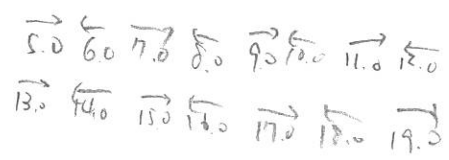 5.0 6.0 7.0 8.0 9.0 10.0 11.0 12.0
13.0 14.0 15.0 16.0 17.0 18.0 19.0